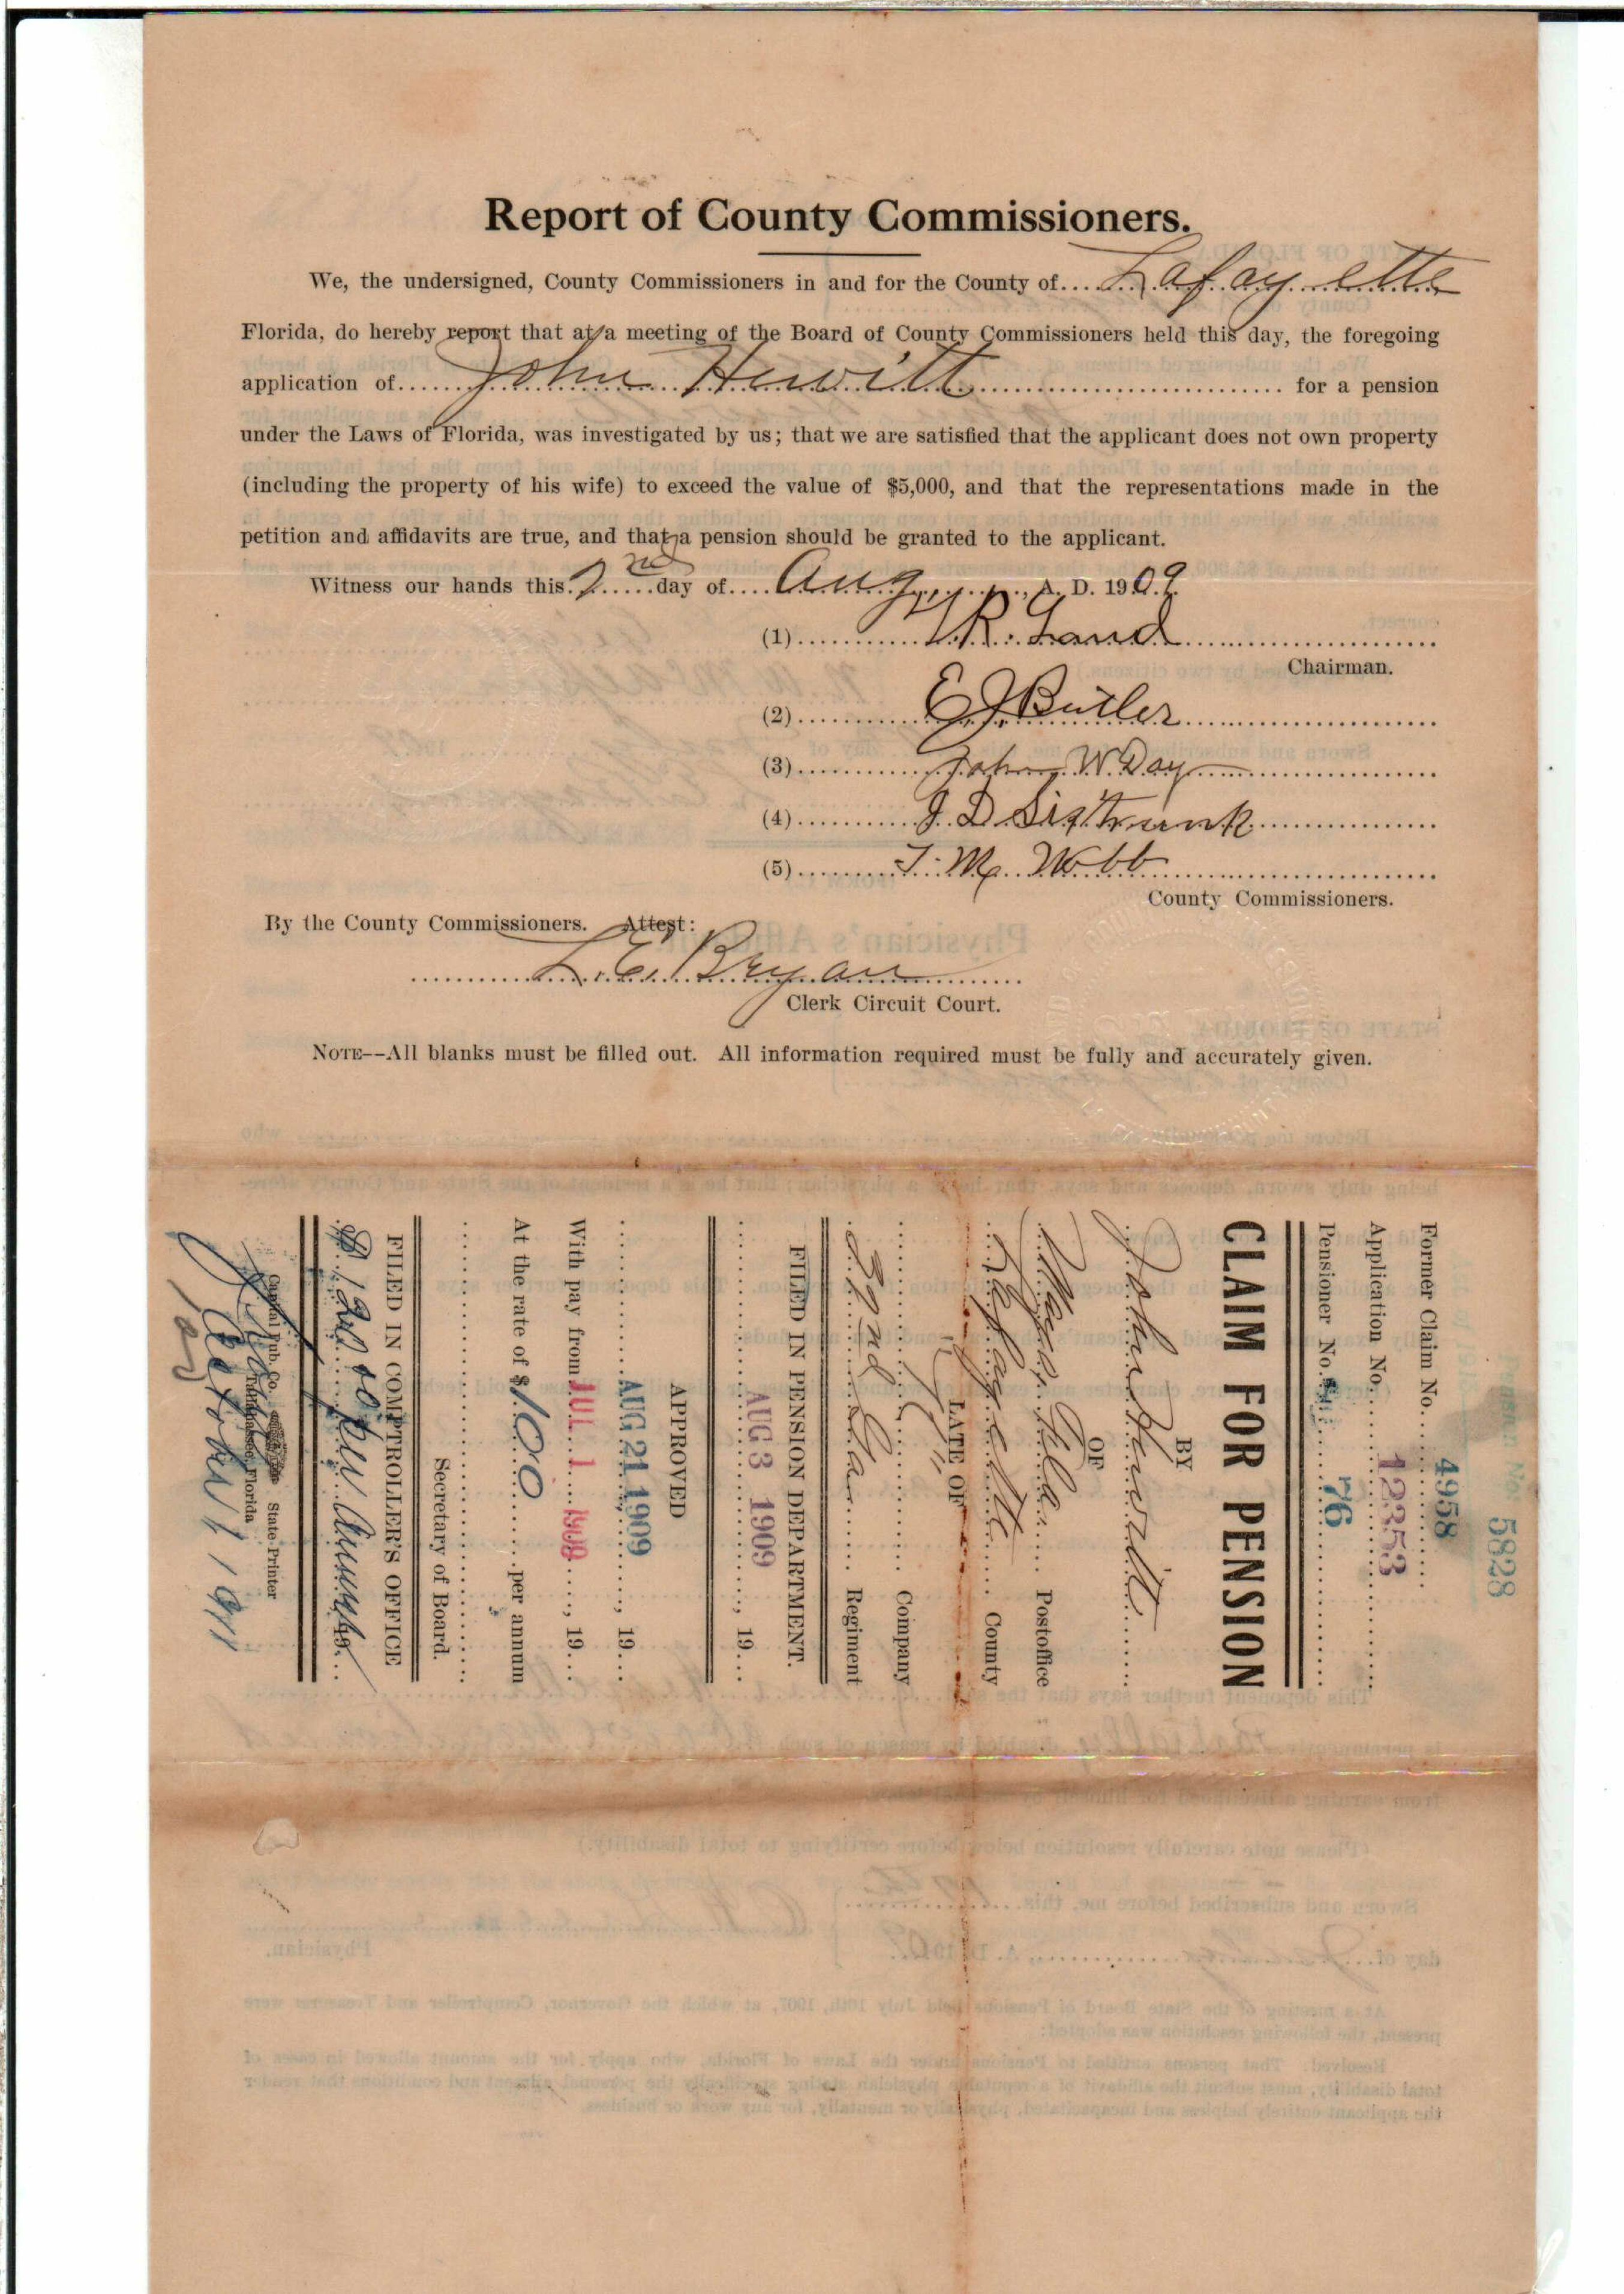 Report of County Commissioners.
We, the undersigned, County Commissioners in and for the County of Lafayette
Florida, do hereby report that at a meeting of the Board of County Commissioners held this day, the foregoing
application of John Hewitt for a pension
under the Laws of Florida, was investigated by us; that we are satisfied that the applicant does not own property
(including the property of his wife) to exceed the value of $5,000, and that the representations made in the
petition and affidavits are true, and that a pension should be granted to the applicant.
Witness our hands this 2nd day of Aug, A. D. 1909.
(1) R. Land
Chairman.
(2) E J Butler
(3) John W. Day
(4) J. D Sistrunk
(5) T. M. Webb
County Commissioners.
By the County Commissioners. Attest:
L. E. Bryan
Clerk Circuit Court.
NOTE--All blanks must be filled out. All information required must be fully and accurately given.
5828
Former Claim No. 4958
Application No. 12353
Pensioner No. 76
CLAIM FOR PENSION
BY
John Hewitt
OF
Mayo, Fla. Postoffice
Lafayette County
LATE OF
Company
32nd Ga Regiment
FILED IN PENSION DEPARTMENT.
AUG 3 1909, 19
APPROVED
AUG 21 1909, 19
With pay from JUL 1 1909, 19
At the rate of $100 per annum
Secretary of Board.
FILED IN COMPTROLLER'S OFFICE
Capital Pub. Co. State Printer
Tallahassee, Florida
October 1 1911